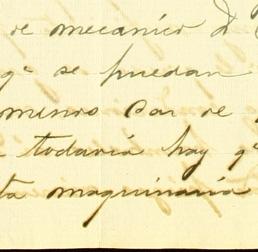 de mecanico D
qᵉ se puedan
omenos car de
todavia hay qᵉ
ta maquinaria